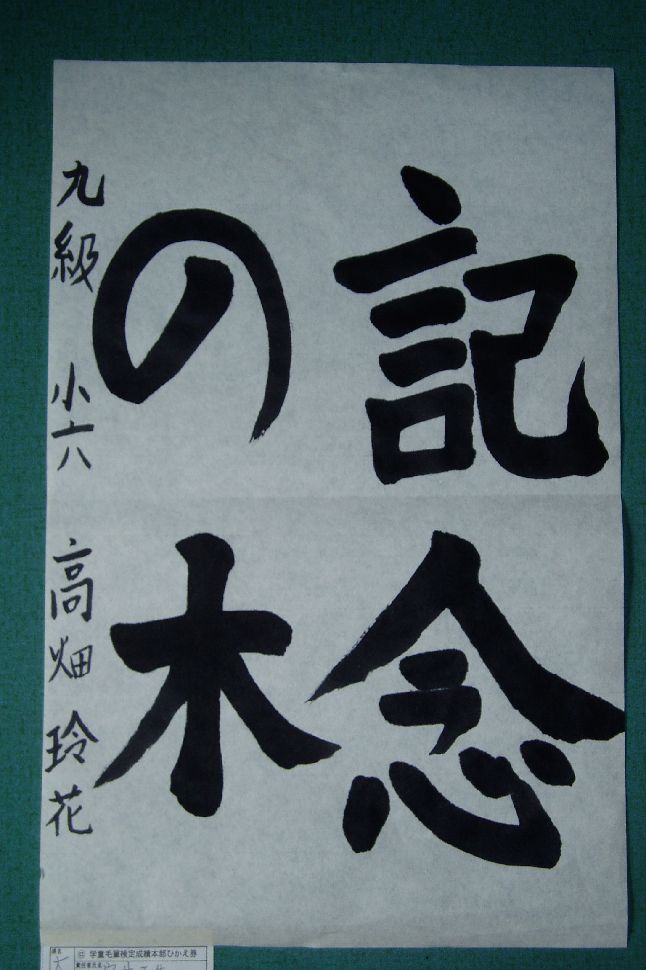 記念
の木
九級 小六 高畑 玲花
学童毛筆検定成績本部ひかえ券